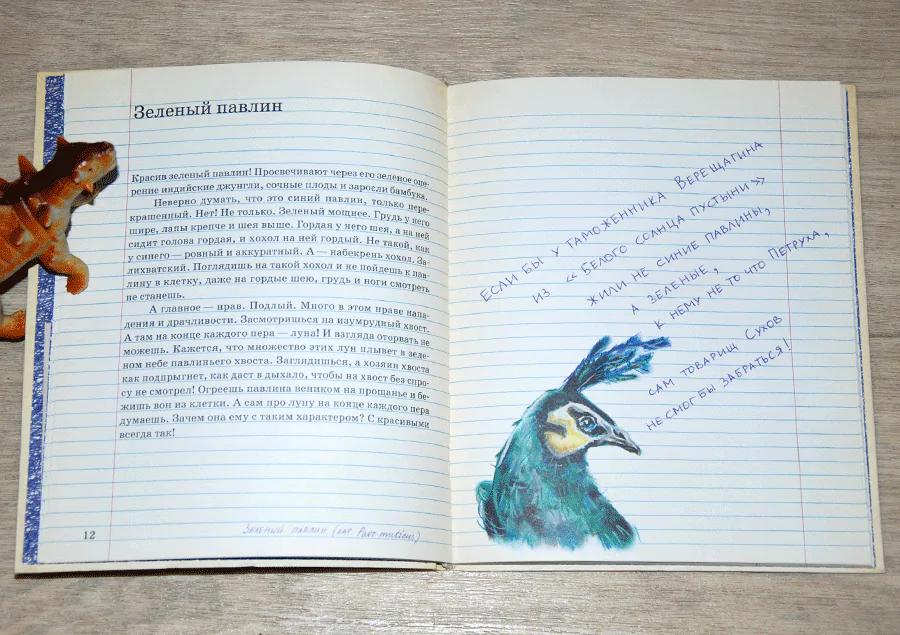 Зеленый павлин
Красив зеленый павлин! Просвечивают через его зеленое опе-
рение индийские джунгли, сочные плоды и заросли бамбука.
Неверно думать, что это синий павлин, только пере-
крашенный. Нет! Не только. Зеленый мощнее. Грудь у него
шире, лапы крепче и шея выше. Гордая у него шея, а на ней
сидит голова гордая, и хохол на ней гордый. Не такой, как
у синего — ровный и аккуратный. А — набекрень хохол. За-
лихватский. Поглядишь на такой хохол и не пойдешь к пав-
лину в клетку, даже на гордые шею, грудь и ноги смотреть
не станешь.
А главное — нрав. Подлый. Много в этом нраве напа-
дения и драчливости. Засмотришься на изумрудный хвост.
А там на конце каждого пера — луна! И взгляда оторвать не
можешь. Кажется, что множество этих лун плывет в зеле-
ном небе павлиньего хвоста. Заглядишься, а хозяин хвоста
как подпрыгнет, как даст в дыхало, чтобы на хвост без спро-
су не смотрел! Огреешь павлина веником на прощанье и бе-
жишь вон из клетки. А сам про луну на конце каждого пера
думаешь. Зачем она ему с таким характером? С красивыми
всегда так!
12
Зеленый павлин (лат. Pavo muticus)
Если бы у таможенника Верещагина
из «Белого солнца пустыни»
жили не синие павлины,
а зеленые,
к нему не то что Петруха,
сам товарищ Сухов
не смог бы забраться!